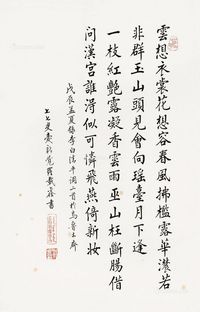 雲想衣裳花想容春風拂檻露華濃若
非群玉山頭見會向瑤臺月下逢
一枝紅艷露凝香雲雨巫山枉斷腸借
問漢宮誰得似可憐飛燕倚新妝
戊辰孟夏錄李白清平調二首於
書